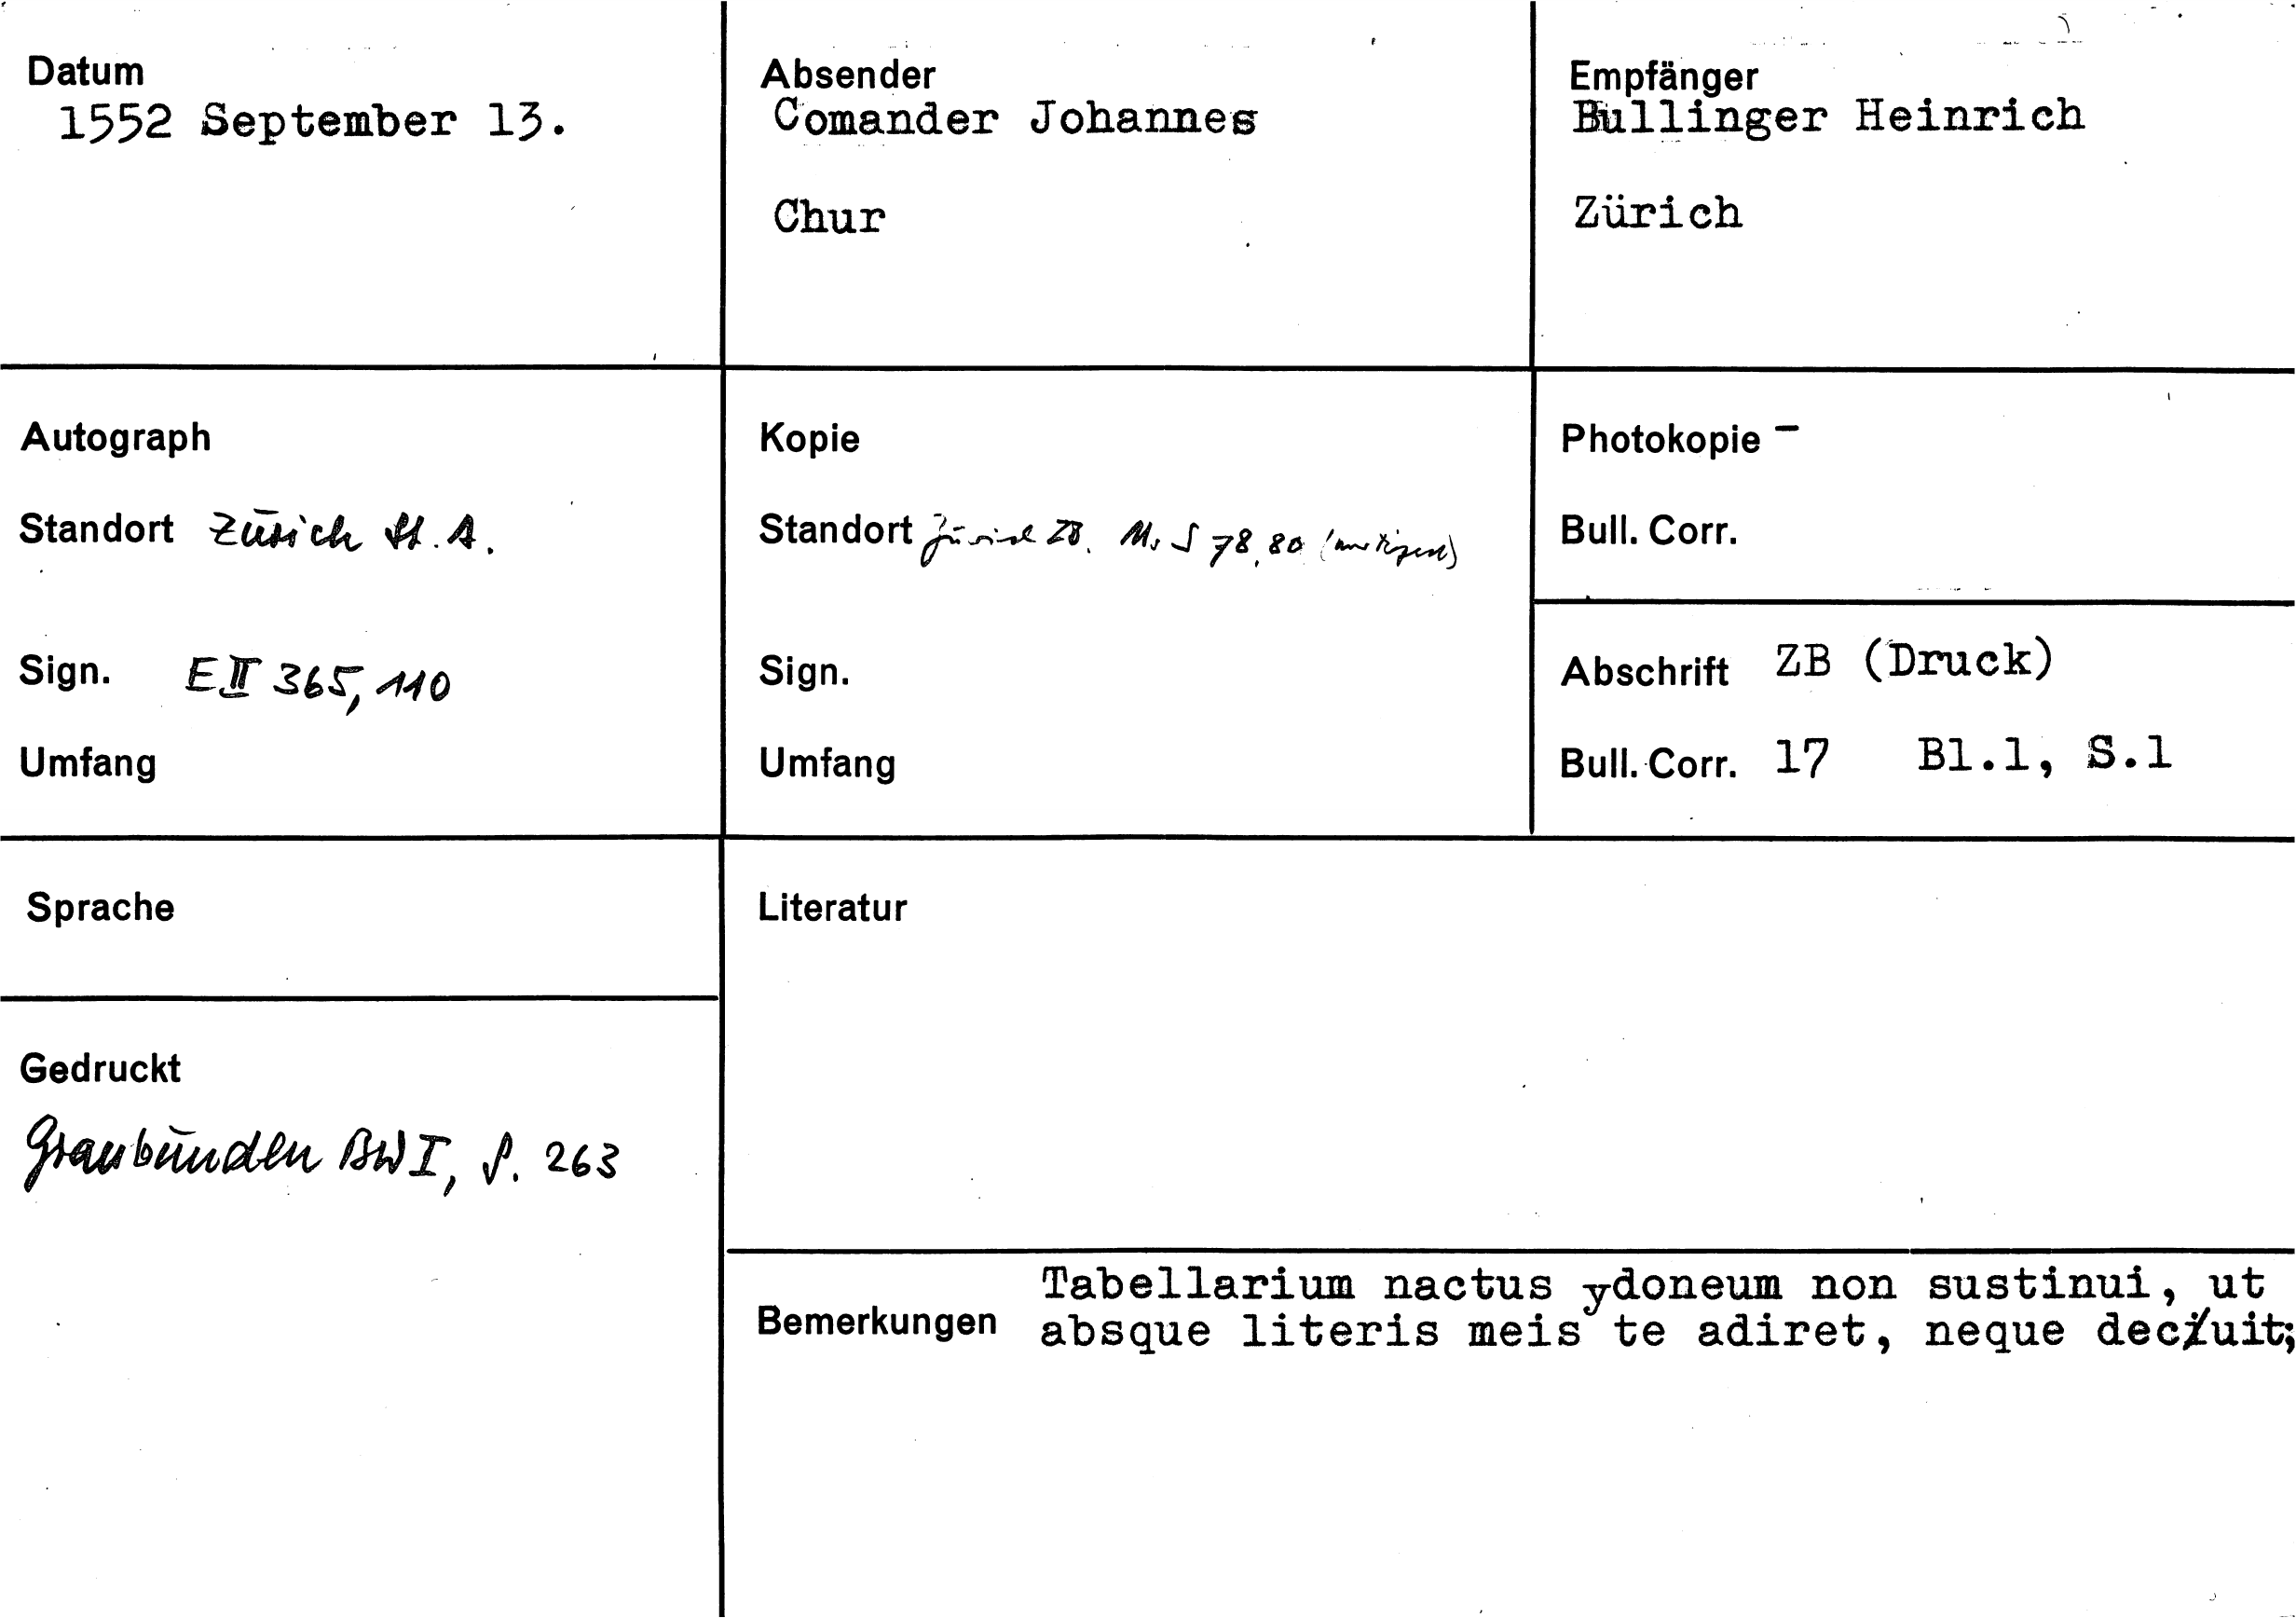 Datum
1552 September 13.
Absender
Comander Johannes
Chur
Empfänger
Bullinger Heinrich
Zürich
Autograph
Standort Zürich St. A.
Sign. E II 365, 110
Umfang
Kopie
Standort Zürich ZB. Ms S 78, 80
Sign.
Umfang
Photokopie -
Bull. Corr.
Abschrift ZB (Druck)
Bull. Corr. 17 Bl.1, S.1
Sprache
Gedruckt
Graubünden BW I, S. 263
Literatur
Bemerkungen
Tabellarium nactus ydoneum non sustinui, ut
absque literis meis te adiret, neque decuit;